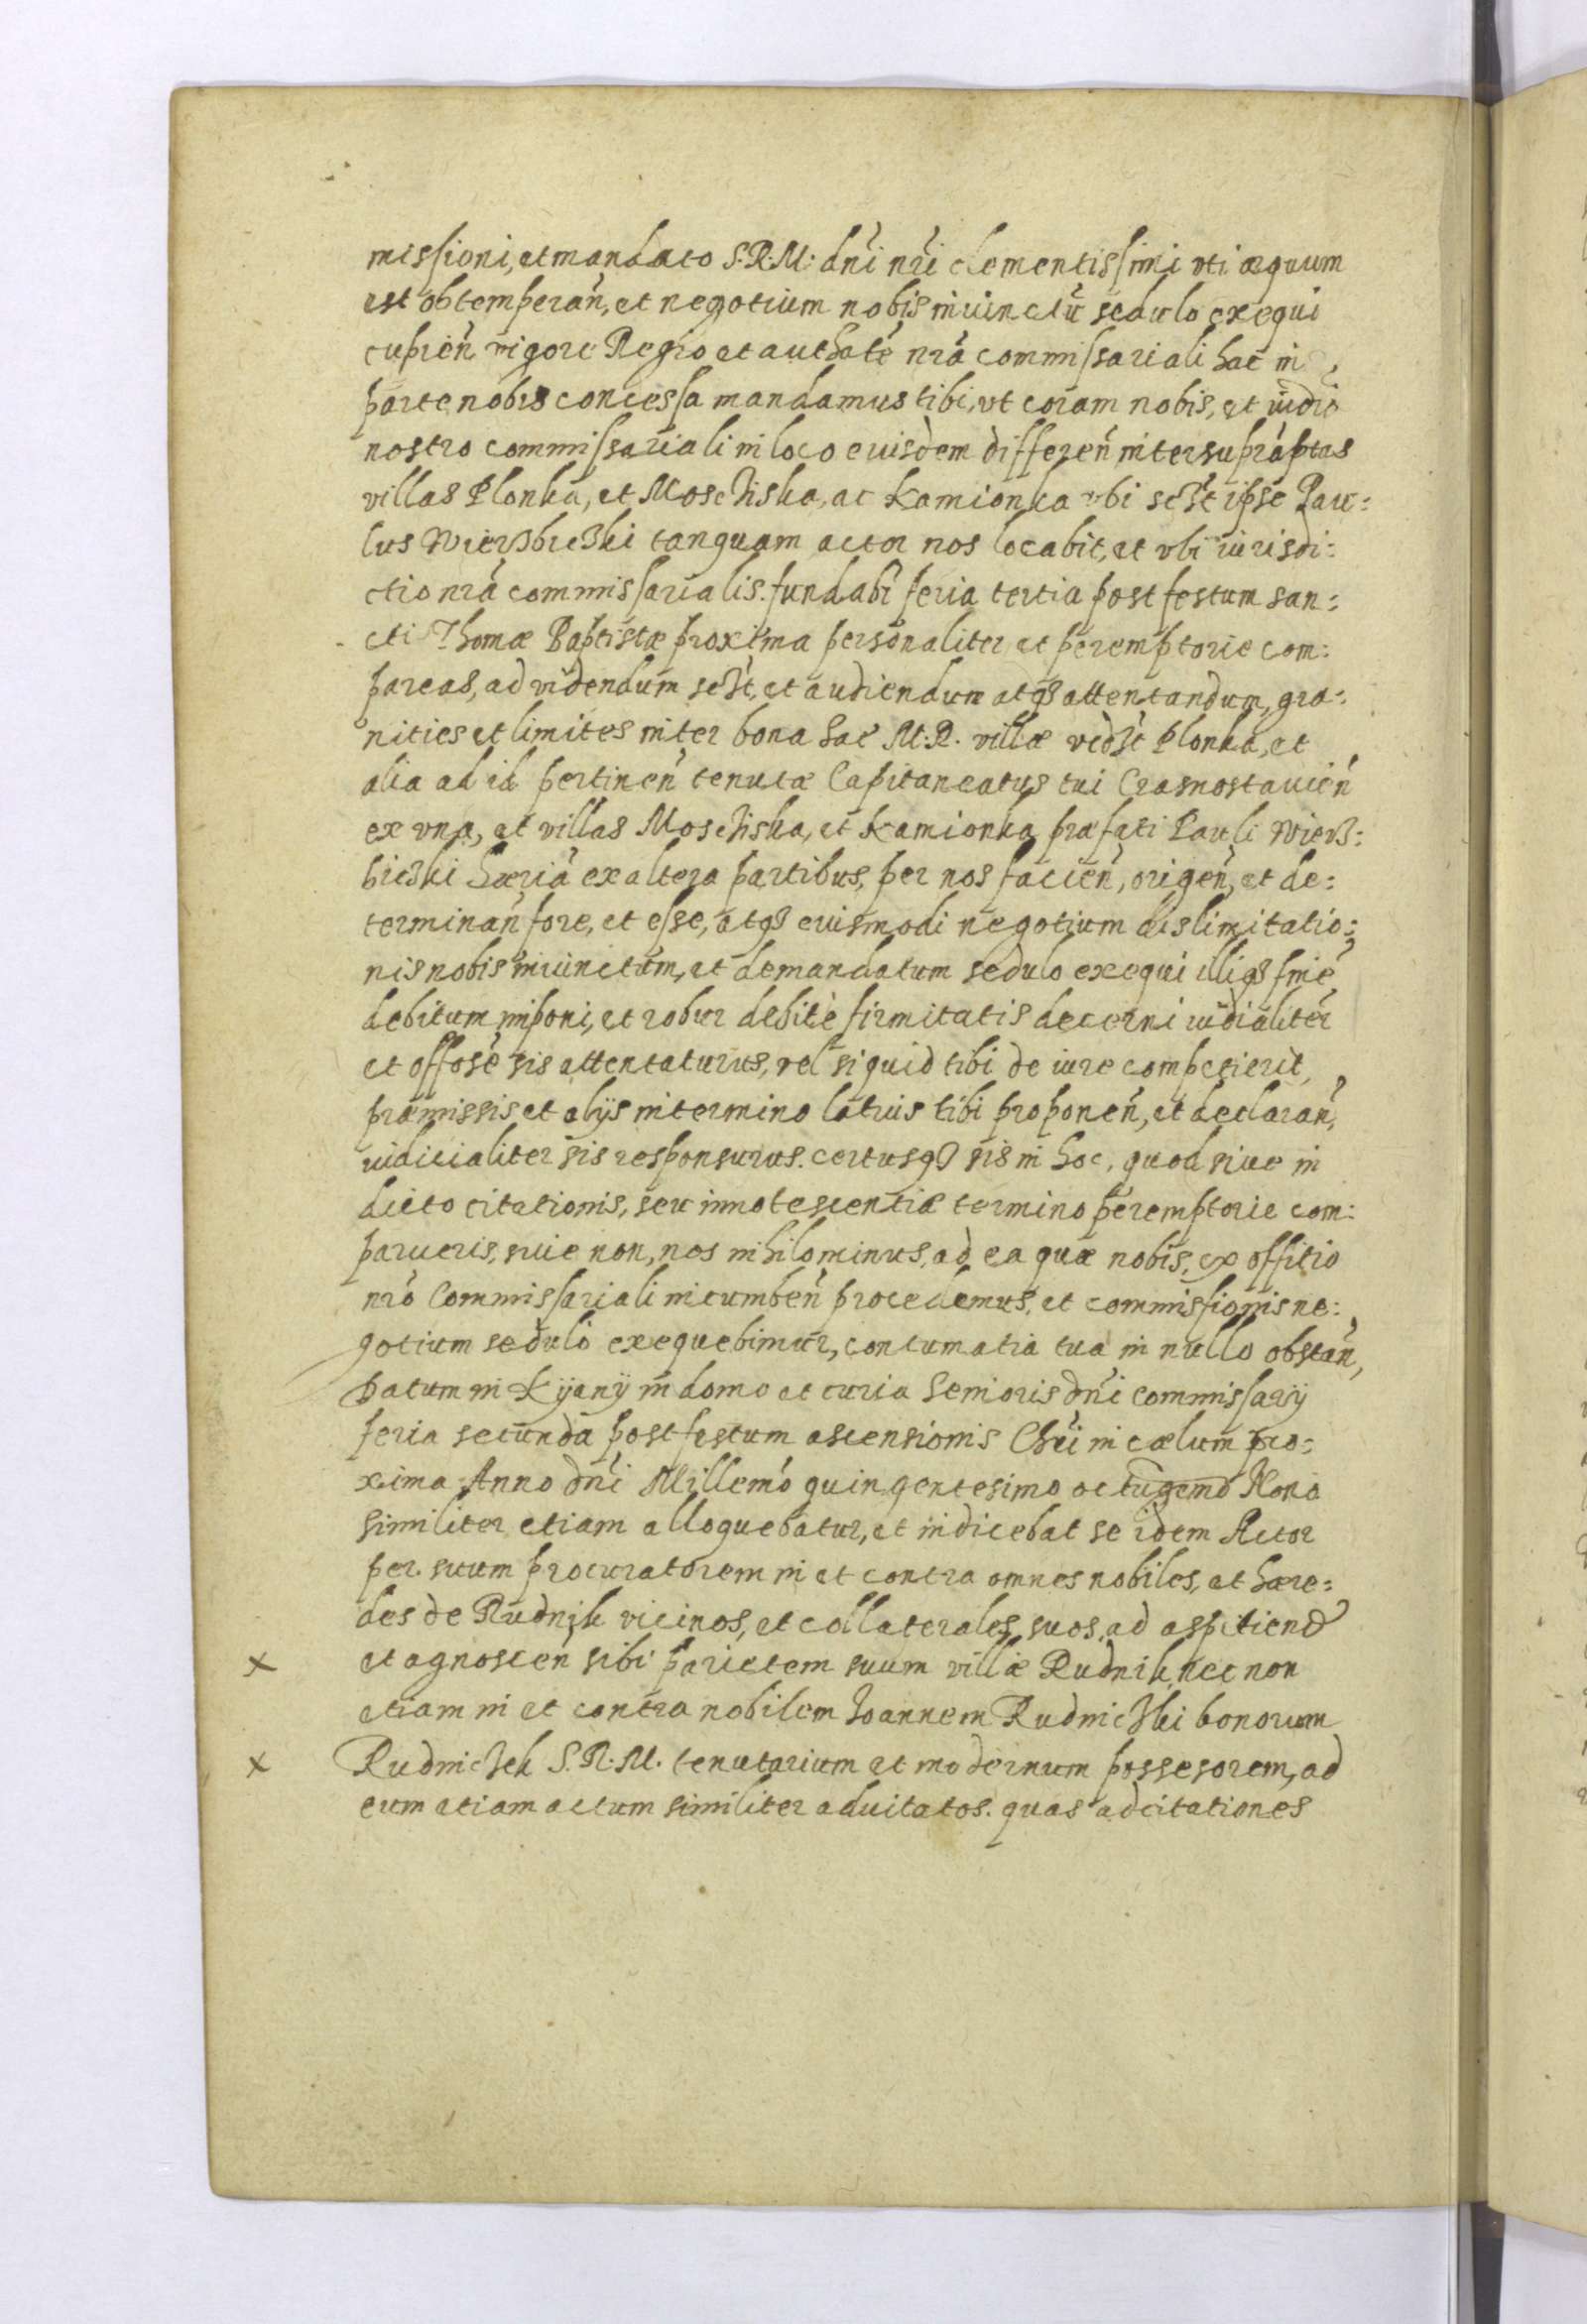 missioni, et mandato S:R:M: dńi nŕi clementissimi vti æquum
est obtemperań, et negotium nobis iniunctū sedulo exequi
cupień vigore Regio et authate nrá commissariali hac in
parte nobis concessa mandamus tibi, vt coram nobis, et iudio
nostro commissariali in loco eiusdem differeń inter supráptas
villas Plonka, et Moschiska, ac Kamionka vbi sczt ipse Pau:
lus Wierzbiczki tanquam actor nos locabit, et vbi iurisdi:
ctio nrá commissarialis fundabi feria tertia post festum san:
cti Thomæ Baptistæ proxima personaliter et peremptorie com:
pareas, ad videndum sczt, et audiendum atqz attentandum, gra:
nities et limites inter bona hac M:R. villæ vedzt Plonka, et
alia ad id pertineń tenutæ Capitaneatus tui Crasnostauień
ex vna, et villas Moschiska, et Kamionka præfati Pauli Wierz:
biczki hæriá ex altera partibus, per nos facień, origeń, et de:
terminań fore, et esse, atqz eiusmodi negotium dislimitatio:
nis nobis iniunctum, et demandatum sedulo exequi illiqz finé
debitum imponi, et robur debite firmitatis decerni iudialiter
et offose sis attentaturus, vel si quid tibi de iure competierit,
præmissis et alijs in termino latius tibi proponeń, et declarań,
iudicialiter sis responsurus. certusqz sis in hoc, quod siue in
dicto citationis, seu innotescentiæ termino peremptorie com:
parueris, siue non, nos nihilominus, ad ea quæ nobis, ex offitio
nró Commissariali incumbeń procedemus, et commissionis ne:
gotium sedulo exequebimur, contumatia tua in nullo obstań,
Datum in Kÿanÿ in domo et curia Senioris dńi commissarÿ
feria secunda post festum ascensionis Chŕi in cælum pro:
xima Anno dńi Millemó quingentesimo octuagemo Nono
similiter etiam alloquebatur, et indicebat se idem Actor
per suum procuratorem in et contra omnes nobiles, et hære:
des de Rudnik vicinos, et collaterales suos, ad aspitiend
x et agnosceń sibi parietem suum villæ Rudnik, nec non
etiam in et contra nobilem Ioannem Rudniczki bonorum
x Rudniczek S.R.M. tenutarium et modernum possesorem, ad
eum etiam actum similiter aduitatos. quas adcitationes